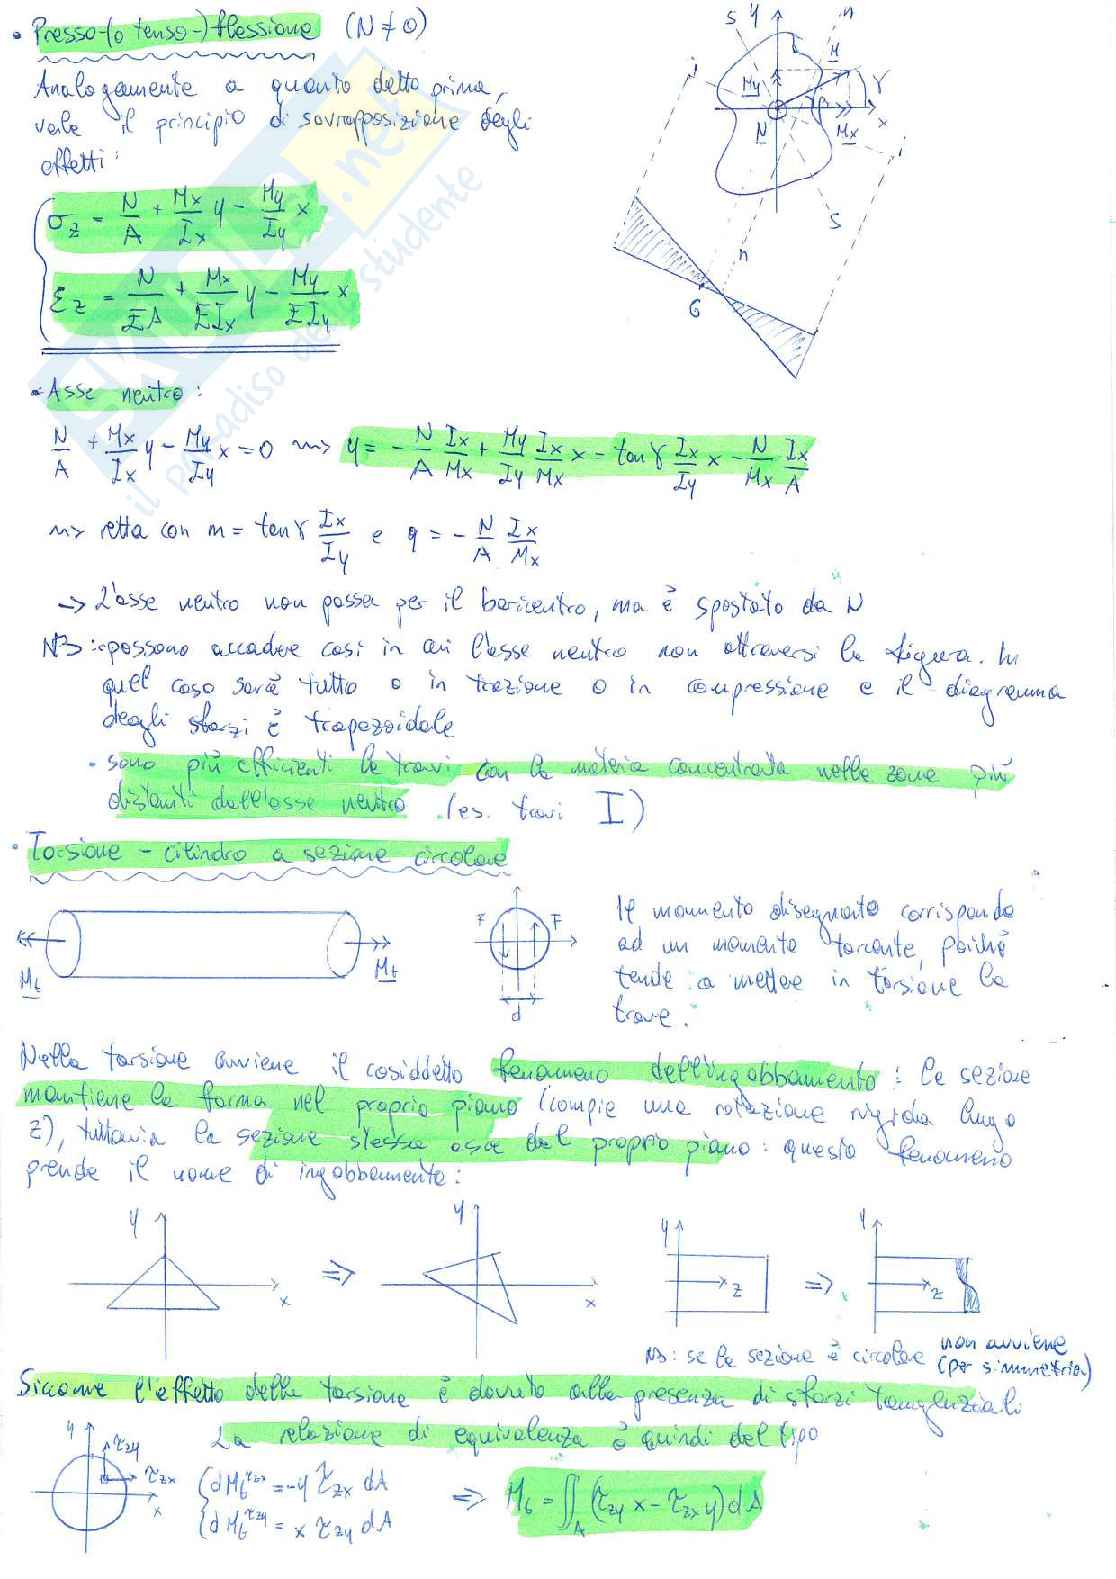 • Presso-(o tenso-)flessione (N ≠ 0)
Analogamente a quanto detto prima,
vale il principio di sovrapposizione degli
effetti:
σz = N/A + Mx/Ix y − My/Iy x
εz = N/EA + Mx/EIx y − My/EIy x
S y n
M
My γ
N Mx x
S
n
G
• Asse neutro:
N/A + Mx/Ix y − My/Iy x = 0 ⇝ y = − N/A Ix/Mx + My/Iy Ix/Mx x − tanγ Ix/Iy x − N/Mx Ix/A
⇝ retta con m = tanγ Ix/Iy e q = − N/A Ix/Mx
→ L'asse neutro non passa per il baricentro, ma è spostato da N
NB: • possono accadere casi in cui l'asse neutro non attraversi la figura. In
quel caso sarà tutto o in trazione o in compressione e il diagramma
degli sforzi è trapezoidale
• sono più efficienti le travi con la materia concentrata nelle zone più
distanti dall'asse neutro (es. travi I)
• Torsione - cilindro a sezione circolare
Mt Mt
F F
d
Il momento disegnato corrisponde
ad un momento torcente, poiché
tende a mettere in torsione la
trave.
Nella torsione avviene il cosiddetto fenomeno dell'ingobbamento: la sezione
mantiene la forma nel proprio piano (compie una rotazione rigida lungo
z), tuttavia la sezione stessa esce dal proprio piano: questo fenomeno
prende il nome di ingobbamento:
y x ⇒ y x
y z ⇒ y z
NB: se la sezione è circolare non avviene
(per simmetria)
Siccome l'effetto della torsione è dovuto alla presenza di sforzi tangenziali
La relazione di equivalenza è quindi del tipo
y τzy τzx x
dMt^τzx = −y τzx dA
dMt^τzy = x τzy dA
⇒ Mt = ∬A (τzy x − τzx y) dA
SKUOLA.net
il paradiso dello studente